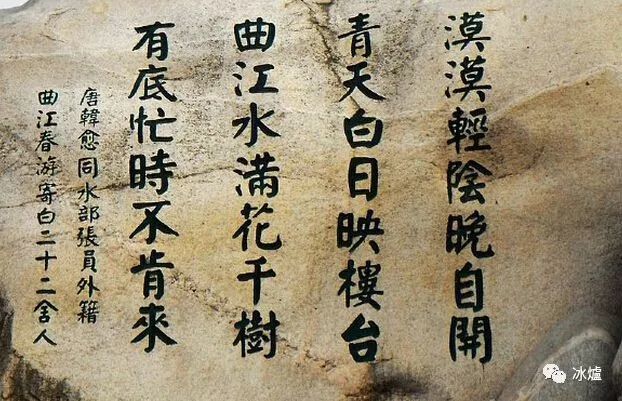 漠漠輕陰晚自開
青天白日映樓台
曲江水满花千樹
有底忙時不肯來
唐韓愈同水部張員外籍
曲江春游寄白二十二舍人
冰爐